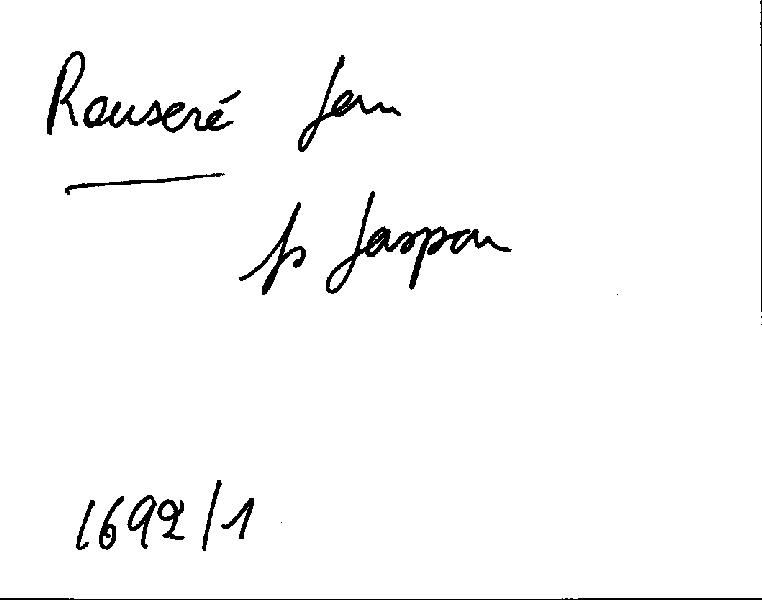 Rouseré Jean
p Jaspar
1692/1